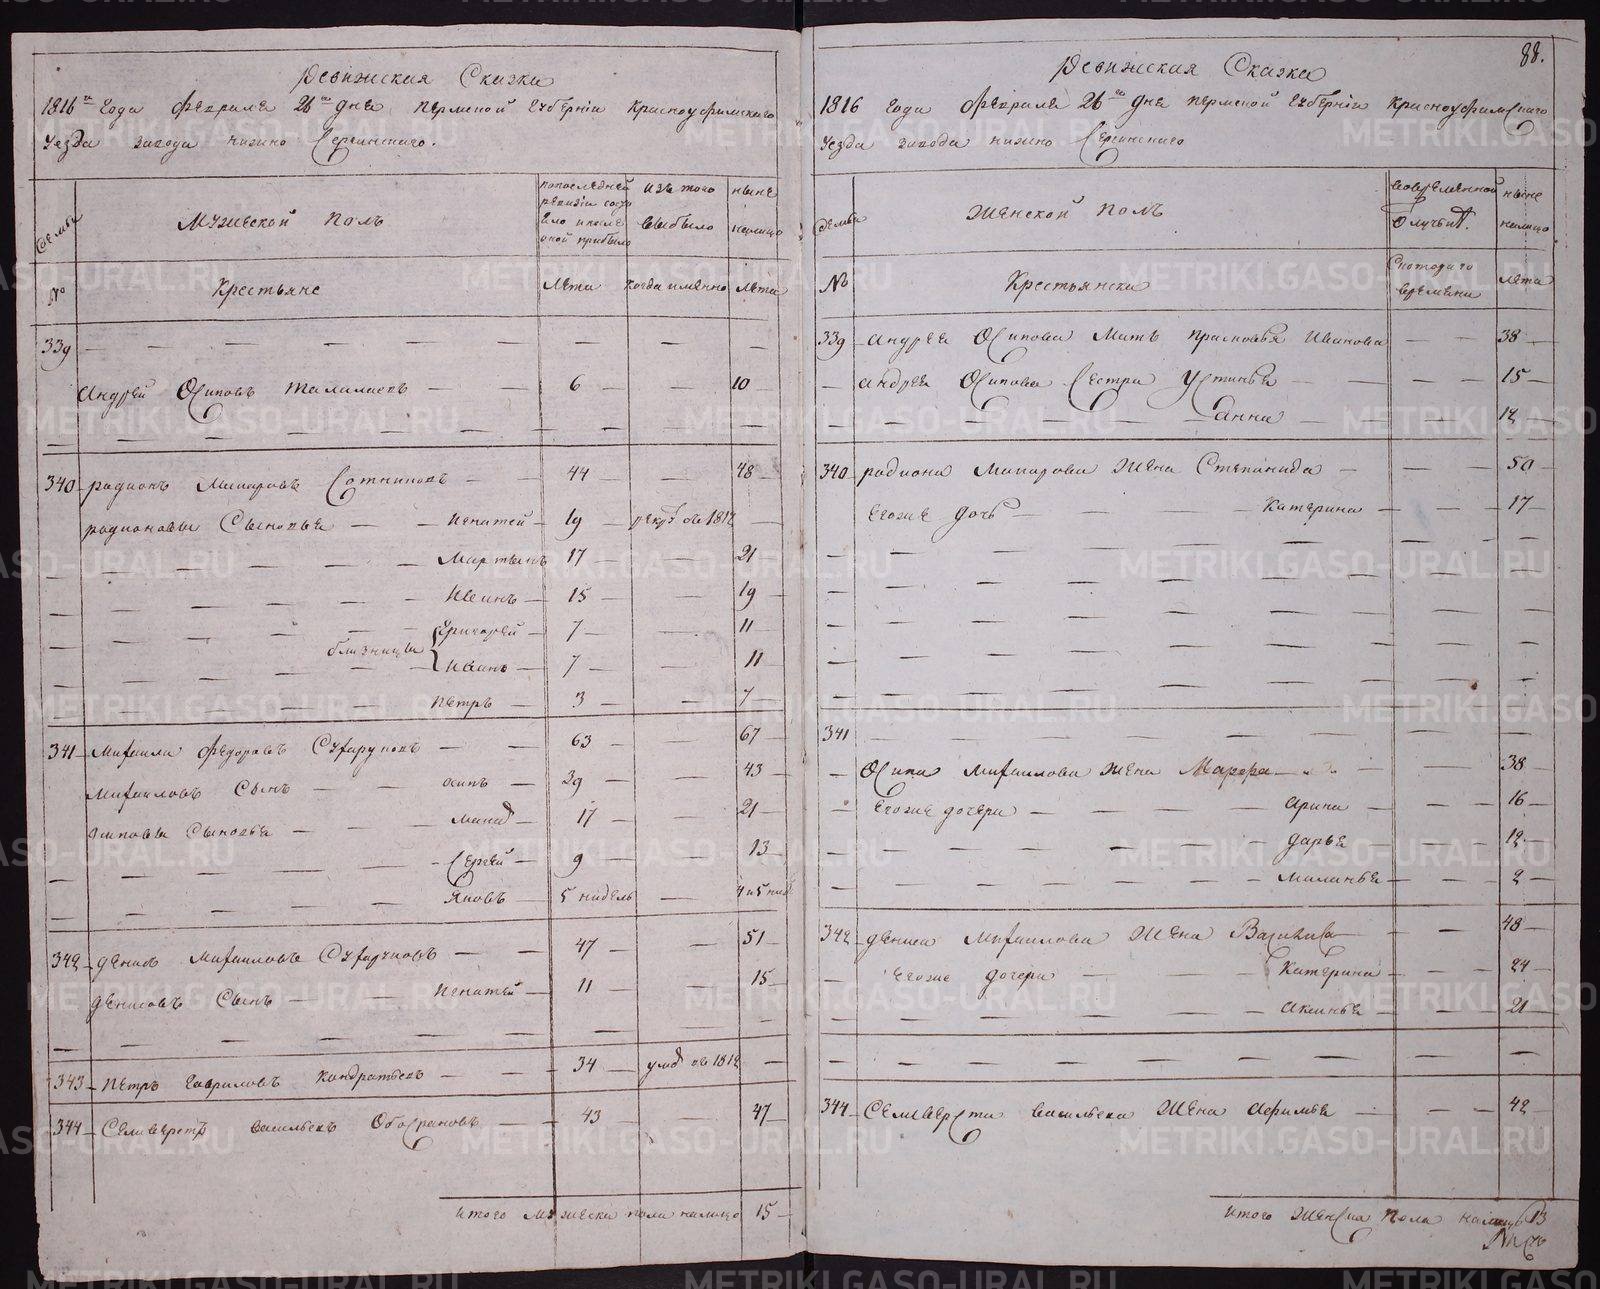 Ревижская Сказка
1816го Года Февраля 26го дня пермской Губернiи Красноуфимскаго
Уезда завода нижно Сергинскаго.
Семьи
Мужеской полъ
попоследней ревизiи состояло ипосле оной прибыло
изъ того выбыло
ныне налицо
№
Крестьяне
Лета
когда имянно
Лета
339
Андрей Осиповъ Талалаевъ 6 10
340 родионъ Макаровъ Сотниковъ 44 48
родионовы Сыновья Игнатей 19 рекрут въ 1812
Мартынъ 17 21
Иванъ 15 19
близницы Григорей 7 11
Иванъ 7 11
Петръ 3 7
341 Михаила Федоровъ 63 67
Михаиловъ Сынъ осипъ 39 43
осиповы Сыновья 17 21
Сергей 9 13
Яковъ 5 нидель 4 и 5 нид
342 денисъ Михаиловъ 47 51
денисовъ Сынъ Игнатей 11 15
343 Петръ Гавриловъ Кондратьевъ 34 умре въ 1812
344 Селиверстъ васильевъ 43 47
итого мужеска пола налицо 15
88.
Ревижская Сказка
1816 Года Февраля 26го дня пермской Губернiи Красноуфимскаго
Уезда завода нижно Сергинскаго
Семьи
Женской полъ
вовременной отлучьки
ныне налицо
№
Крестьянска
Скотораго времени
Лета
339 андрея Осипова Мать прасковья Иванова 38
андрея Осипова Сестра Устинья 15
анна 12
340 родиона Макарова Жена Степанида 50
Егоже дочь Катерина 17
341
Осипа Михаилова Жена Марфа 38
Егоже дочери арина 16
дарья 12
маланья 2
342 дениса Михаилова Жена Василиса 48
Егоже дочери Катерина 24
аксинья 21
344 Селиверста васильева Жена афимья 42
итого Женска пола налицо 13